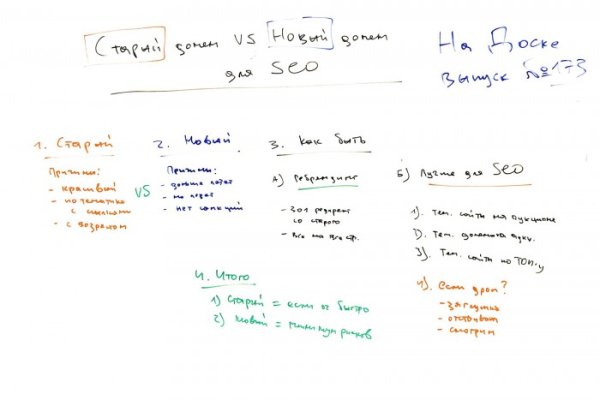 Старый домен VS Новый домен
для SEO
На Доске
выпуск №173
1. Старый
Причины:
- красивый
- по тематике
с ссылками
- с возрастом
VS
2. Новый
Причины:
- дольше
- нет санкций
3. Как быть
А) Ребрендинг
- 301 редирект
со старого
- Все на все стр.
Б) Лучше для SEO
1). Тем. сайты на аукционе
2). Тем. домены аукц.
3). Тем. сайты по ТОП-у
4). если дроп?
- загрузка
- отстаиваем
- смотрим
4. Итого
1) Старый = если оч быстро
2) Новый = минимум рисков